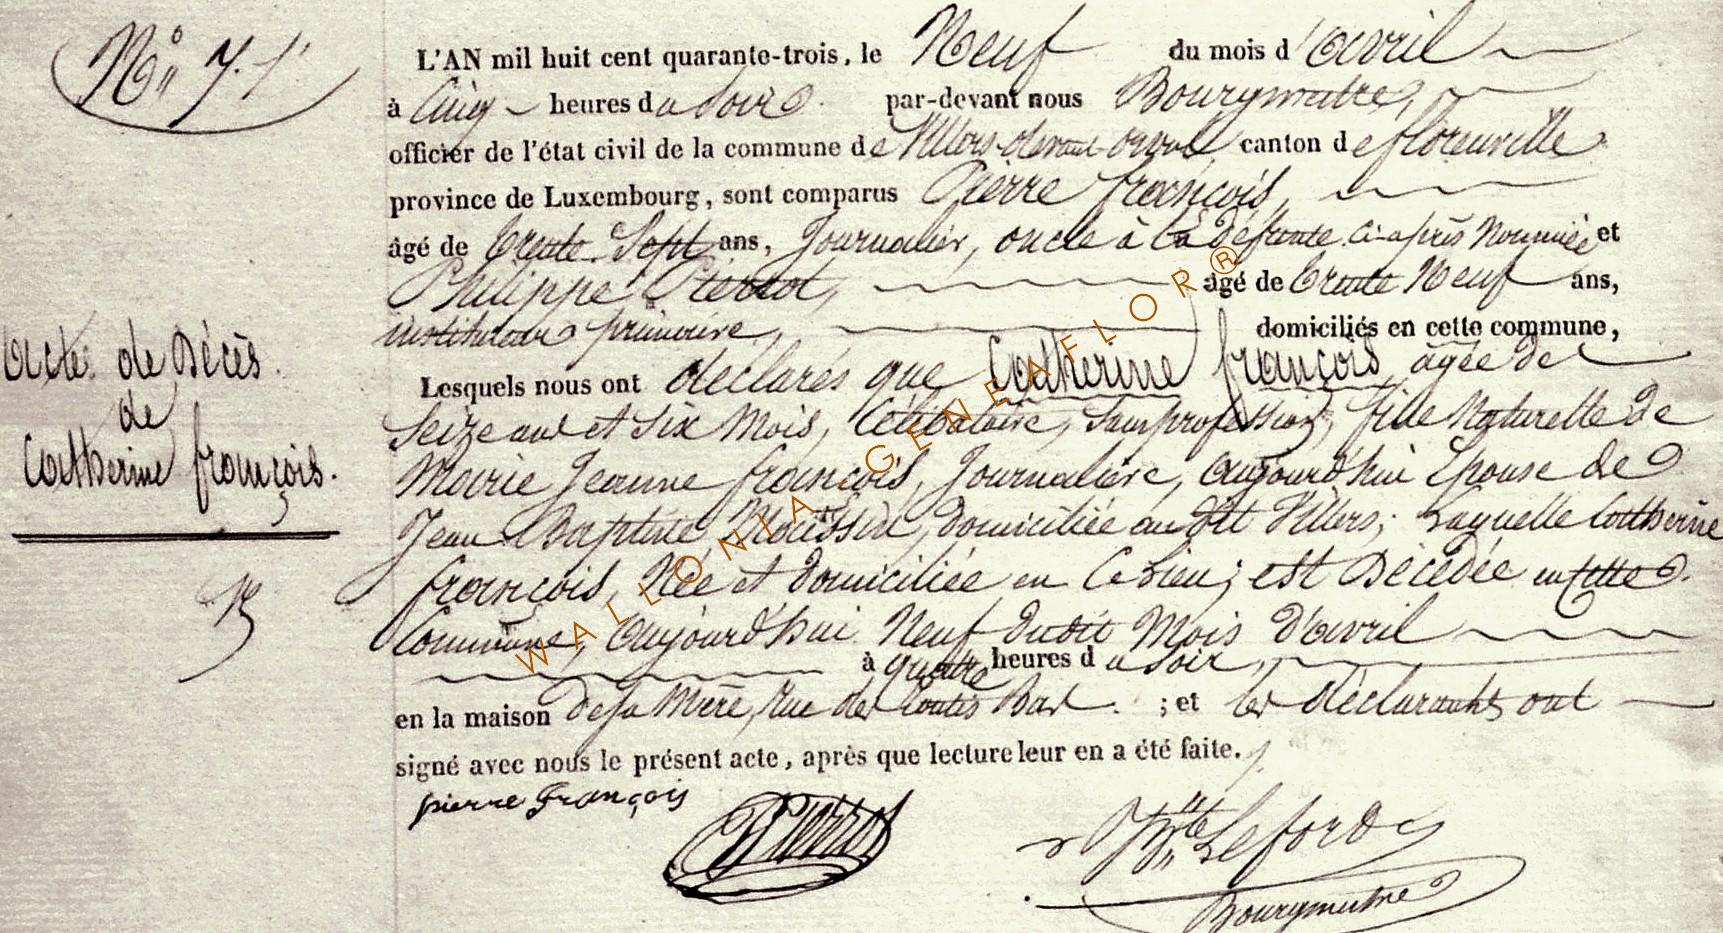 N° 7.
L'AN mil huit cent quarante-trois, le Neuf du mois d'avril
à Cinq heures du Soir par-devant nous Bourgmestre,
officier de l'état civil de la commune de Villers-devant-orval, canton de florenville
province de Luxembourg, sont comparus Pierre françois,
âgé de trente-Sept ans, Journalier, oncle à la défunte ci-après Nommée et
Philippe Pierrot, âgé de trente Neuf ans,
instituteur primaire, domiciliés en cette commune,
Lesquels nous ont déclarés que Catherine françois âgée de
Seize ans et Six Mois, Célibataire, Sans profession, fille Naturelle de
Marie Jeanne françois, Journalière, aujourd'hui Epouse de
Jean Baptiste domiciliée au dit Villers; Laquelle Catherine
françois, Née et domiciliée en Ce Lieu; est Décédée en cette
Commune, aujourd'hui Neuf dudit Mois d'avril
à quatre heures du Soir,
en la maison de sa Mère, rue des Bas ; et les déclarants ont
signé avec nous le présent acte, après que lecture leur en a été faite.
Acte de Décès
de
Catherine françois.
pierre François
Pierrot
Leford
Bourgmestre
WALLONIA GENEAFLOR®